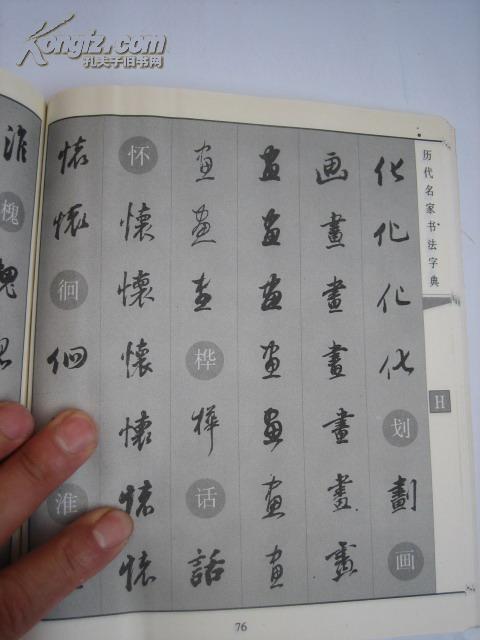 Kongfz.com
孔夫子旧书网
历代名家书法字典
H
化化化化划劃画
画畫畫畫畫畫畫
畫畫畫畫畫畫畫
畫畫畫桦樺话話
怀懷懷懷懷懷懷
懷懷徊徊淮
淮槐槐
76